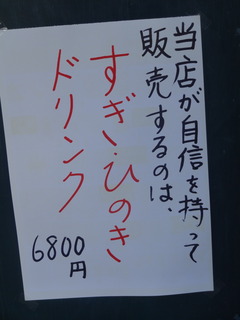 当店が自信を持って
販売するのは、
すぎ・ひのき
ドリンク
6800
円